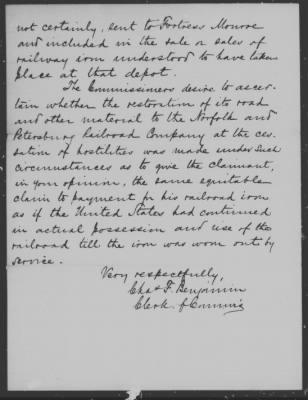 not certainly, sent to Fortress Monroe
and included in the sale or sales of
railway iron understood to have taken
place at that depot.
The Commissioners desire to ascer-
tain whether the restoration of its road
and other material to the Norfolk and
Petersburg Railroad Company at the ces-
sation of hostilities was made under such
circumstances as to give the claimant,
in your opinion, the same equitable
claim to payment for his railroad iron
as if the United States had continued
in actual possession and use of the
railroad till the iron was worn out by
service.
Very respectfully,
Chas F. Benjamin
Clerk of Commrs